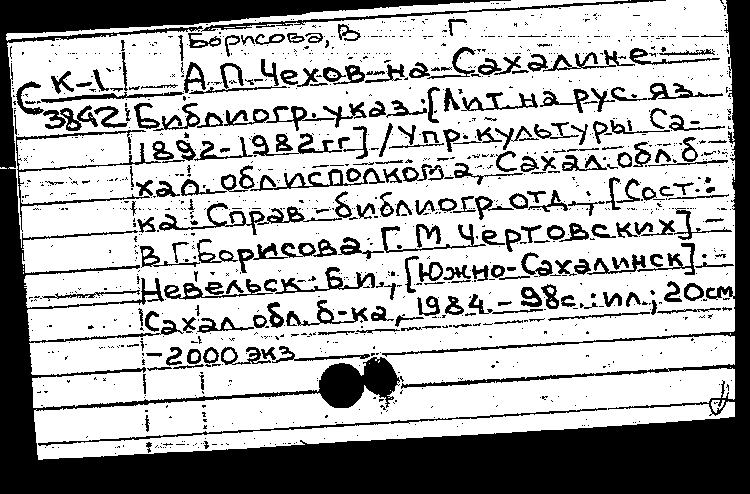 Борисова, В Г
С К-1 А.П.Чехов на Сахалине:
3842 Библиогр. указ.: [Лит. на рус. яз.
1892-1982гг] / Упр. культуры Са-
хал. облисполкома, Сахал. обл. б-
ка. Справ.-библиогр. отд.; [Сост.:
В.Г.Борисова, Г.М.Чертовских]. -
Невельск: Б.и.; [Южно-Сахалинск]: -
Сахал. обл. б-ка, 1984. - 98с.: ил.; 20см
-2000 экз